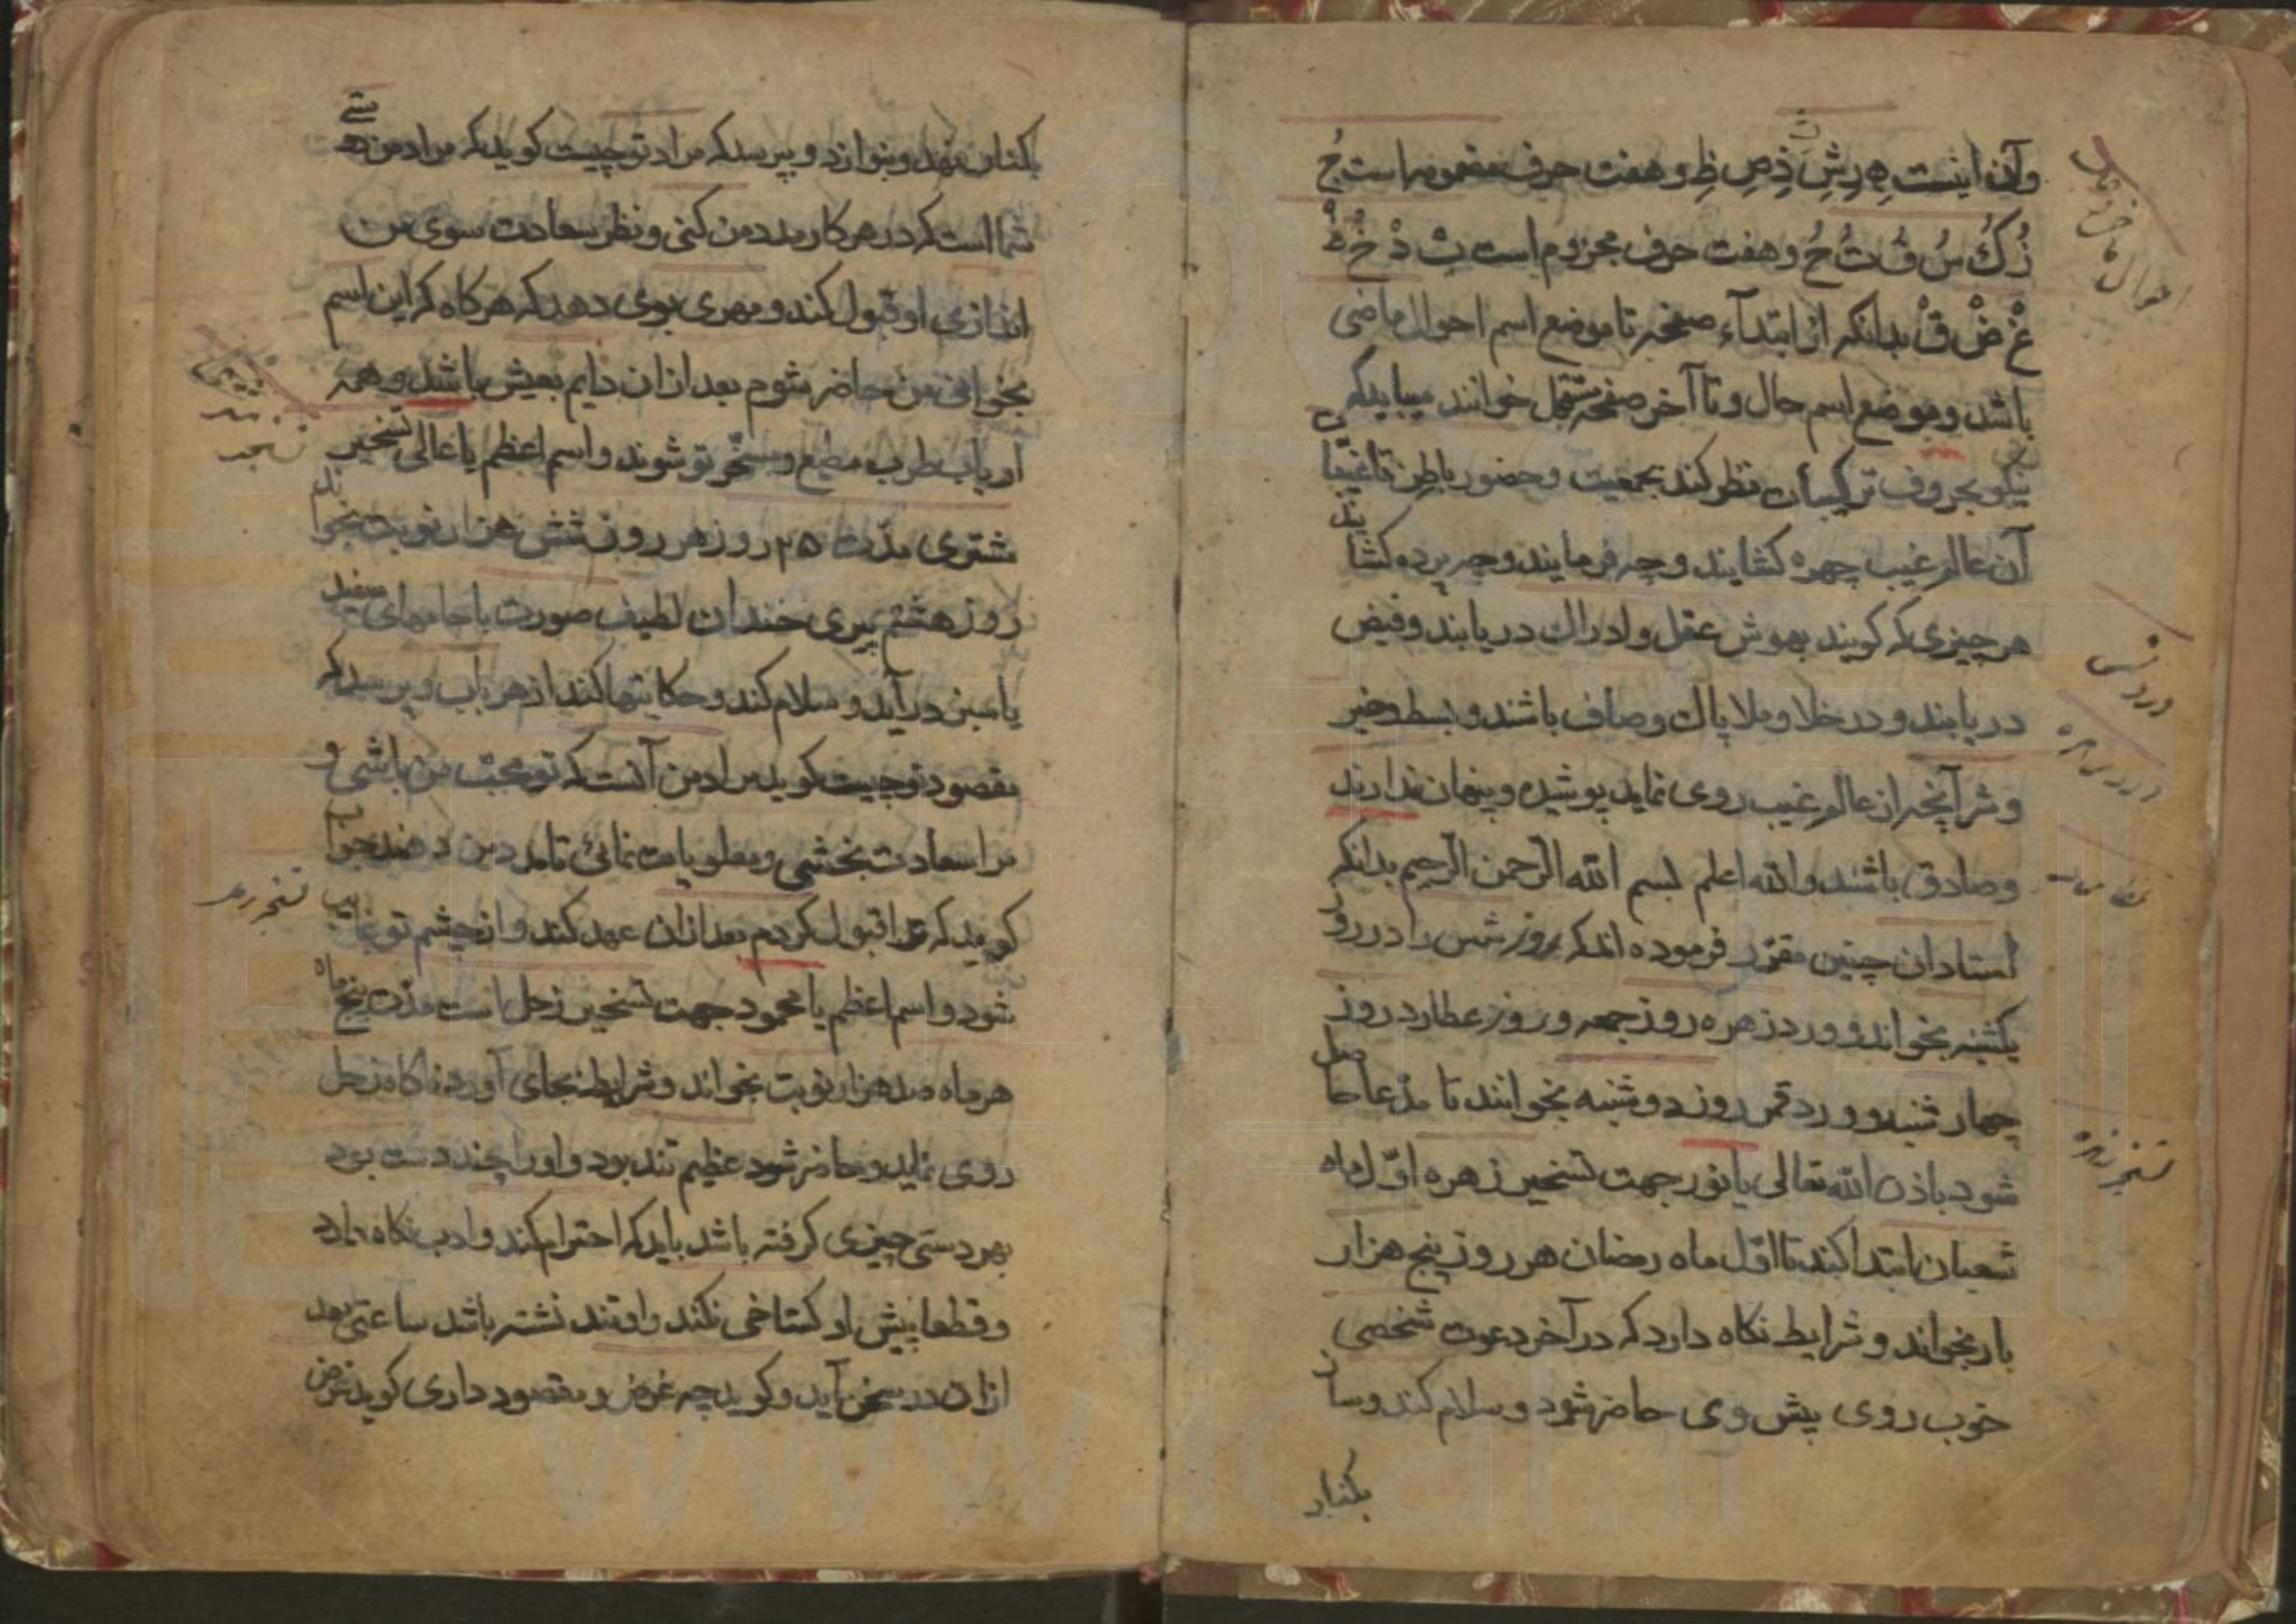 وآن اینست هِ رِ شِ تِ ذِ صِ ظِ و هفت حرف مضموم است جُ
زُ کُ سُ قُ ثُ حُ و هفت حرف مجزوم است بْ دْ خْ طْ
غْ ضْ قْ بدانکه از ابتداء صفحه تا موضع اسم احوال ماضی
باشد و موضع اسم حال و تا آخر صفحه مستقبل خوانند میباید که
نیکو بحروف ترکیبات نظر کند بجمعیت و حضور باطن تا غیبیان
آن عالم غیب چهره کشایند و چه فرمایند و چه پرده کشایند
هر چیزی که کویند بهوش عقل و ادراک دریابند و فیض
دریابند و در خلا و ملا پاک و صاف باشند و بسط و خیر
و شر آنچه از عالم غیب روی نماید پوشیده و پنهان ندارند
و صادق باشند والله اعلم بسم الله الرحمن الرحیم بدانکه
استادان چنین مقرر فرموده اند که روز شمس را در روز
یکشنبه بخواند و ورد زهره روز جمعه و روز عطارد روز
چهارشنبه و ورد قمر روز دوشنبه بخوانند تا مدعا حاصل
شود باذن الله تعالی یا نور جهت تسخیر زهره اول ماه
شعبان ابتدا کند تا اول ماه رمضان هر روز پنج هزار
بار بخواند و شرایط نکاه دارد که در آخر دعوت شخصی
خوب روی پیش وی حاضر شود و سلام کند و ساز
بکنار
احوال
ورد شمس
ورد زهره
تسخیر زهره
بکنار نهد و بنوازد و بپرسد که مراد تو چیست کوید که مراد من همتی
شما است که در هر کار مدد من کنی و نظر سعادت سوی من
اندازی او قبول کند و مهری بوی دهد که هر کاه که این اسم
بخوانی من حاضر شوم بعد ازان دایم بعیش باشد و همه
ارباب طرب مطیع و مسخر تو شوند و اسم اعظم یا عالی تسخیر
مشتری مدت ۲۵ روز هر روز شش هزار نوبت بخواند
روز هشتم پیری خندان لطیف صورت با جامهای سفید
یا سبز در آید و سلام کند و حکایتها کند از هر باب و پرسد که
مقصود تو چیست کوید مراد من آنست که تو محب من باشی و
مرا سعادت بخشی و مطلوبات نمائی تا مدد من دهند جواب
کوید که ترا قبول کردم بعد ازان عهد کند و از چشم تو غایب
شود و اسم اعظم یا محمود جهت تسخیر زحل است مدت پنج ماه
هر ماه صد هزار نوبت بخواند و شرایط بجای آورد ناکاه زحل
روی نماید و حاضر شود عظیم تند بود و او را چند دست بود
بهر دستی چیزی کرفته باشد باید که احترام کند و ادب نکاه دارد
و قطعا پیش او کستاخی نکند و او تند نشسته باشد ساعتی بعد
ازان در سخن آید و کوید چه غرض و مقصود داری کوید غرض